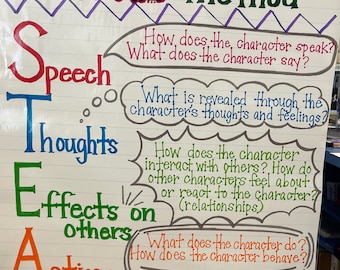 Method
S
Speech
How does the character speak?
What does the character say?
T
Thoughts
What is revealed through the
character's thoughts and feelings?
E
Effects on
others
How does the character
interact with others? How do
other characters feel about
or react to the character?
(relationships)
A
What does the character do?
How does the character behave?